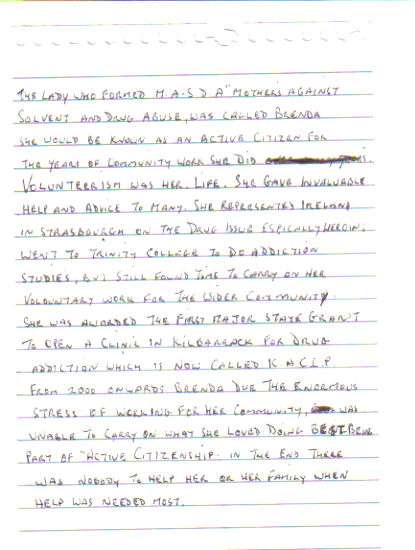 THE LADY WHO FORMED M.A.S D A "MOTHERS AGAINST
SOLVENT AND DRUG ABUSE, WAS CALLED BRENDA
SHE WOULD BE KNOWN AS AN ACTIVE CITIZEN FOR
THE YEARS OF COMMUNITY WORK SHE DID
VOLUNTEERISM WAS HER LIFE. SHE GAVE INVALUABLE
HELP AND ADVICE TO MANY. SHE REPRESENTED IRELAND
IN STRASBOURGH ON THE DRUG ISSUE ESPICALLY HEROIN.
WENT TO TRINITY COLLEGE TO DO ADDICTION
STUDIES, BUT STILL FOUND TIME TO CARRY ON HER
VOLOUNTARY WORK FOR THE WIDER COMMUNITY
SHE WAS AWARDED THE FIRST MAJOR STATE GRANT
TO OPEN A CLINIC IN KILBARRACK FOR DRUG
ADDICTION WHICH IS NOW CALLED K A C.L.P
FROM 2000 ONWARDS BRENDA DUE THE ENORMOUS
STRESS OF WORKING FOR HER COMMUNITY, WAS
UNABLE TO CARRY ON WHAT SHE LOVED DOING BEST BEING
PART OF "ACTIVE CITIZENSHIP. IN THE END THERE
WAS NOBODY TO HELP HER OR HER FAMILY WHEN
HELP WAS NEEDED MOST.